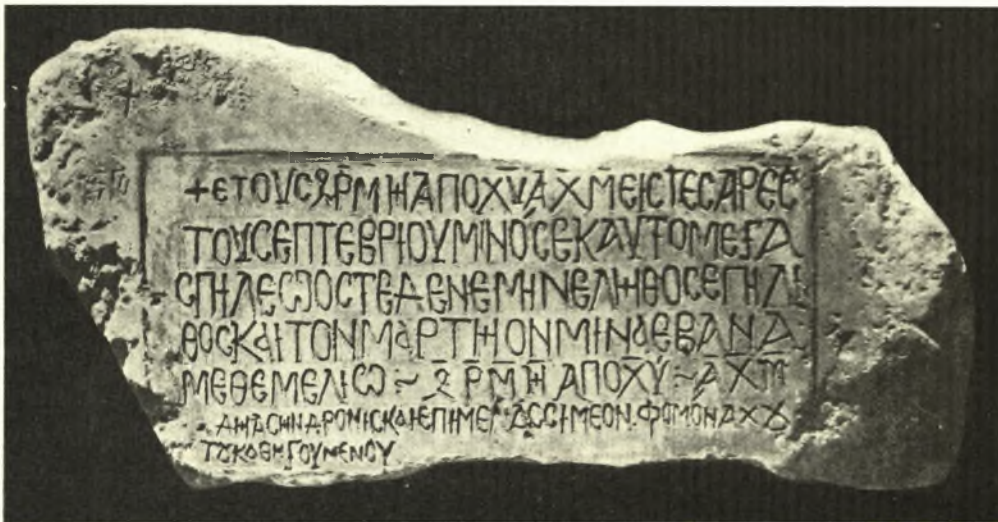 + ΕΤΟΥС ͵ΖΡΜΗ ΑΠΟ ΧΥ ΑΧΜ ΕΙС ΤΕСΑΡΕС
ΤΟΥ СΕΠΤΕΒΡΙΟΥ ΜΙΝΟС ΕΚΑΥΤΟ ΜΕΓΑ
СΠΗΛΕΩ ΟСΤΕ ΔΕΝ ΕΜΗΝΕ ΛΗΘΟС ΕΠΗ ΛΙ
ΘΟС ΚΑΙ ΤΟΝ ΜΑΡΤΗΟΝ ΜΙΝΑ ΕΒΑΝΑ
ΜΕ ΘΕΜΕΛΙΩ ~ ΖΡΜΗ ΑΠΟ ΧΥ ~ ΑΧΜ
СΗΝΔΡΟΜΙС ΚΑΙ ΕΠΙΜΕ ΑС СΙΜΕΟΝ ΜΟΝΑΧΟΥ
ΤΟΥ ΚΑΘΗΓΟΥΜΕΝΟΥ